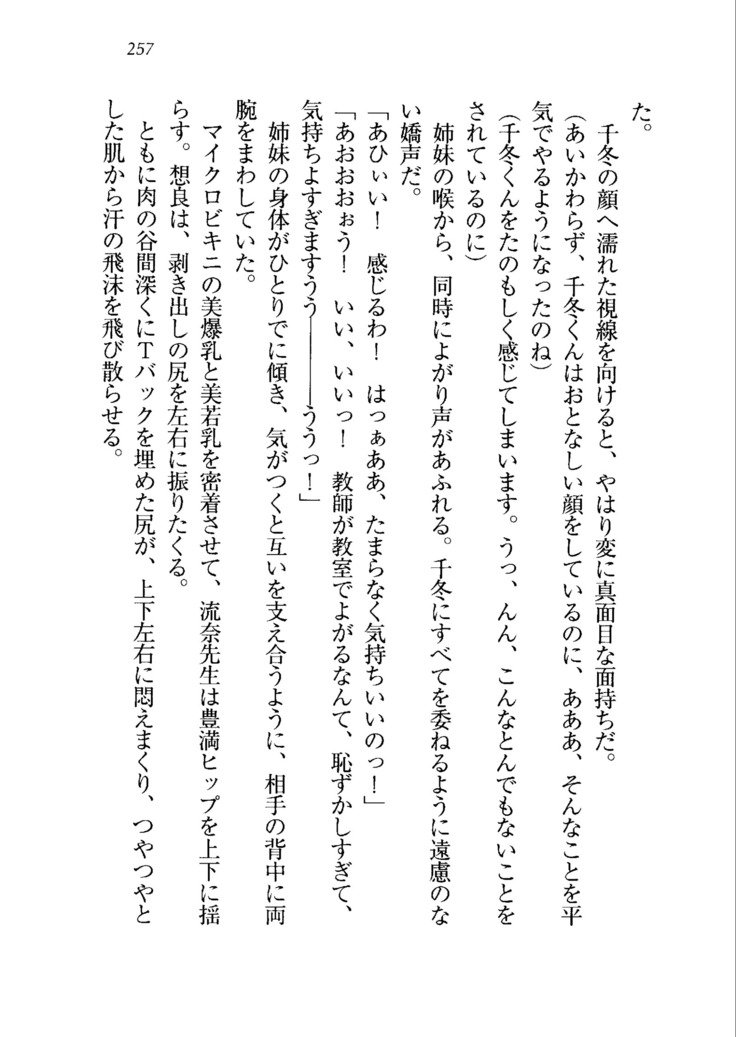 257
た。
　千冬の顔へ濡れた視線を向けると、やはり変に真面目な面持ちだ。
（あいかわらず、千冬くんはおとなしい顔をしているのに、あああ、そんなことを平
気でやるようになったのね）
（千冬くんをたのもしく感じてしまいます。うっ、んん、こんなとんでもないことを
されているのに）
　姉妹の喉から、同時によがり声があふれる。千冬にすべてを委ねるように遠慮のな
い嬌声だ。
「あひぃい！　感じるわ！　はっぁああ、たまらなく気持ちいいのっ！」
「あおおおぉう！　いい、いいっ！　教師が教室でよがるなんて、恥ずかしすぎて、
気持ちよすぎますうう――――ううっ！」
　姉妹の身体がひとりでに傾き、気がつくと互いを支え合うように、相手の背中に両
腕をまわしていた。
　マイクロビキニの美爆乳と美若乳を密着させて、流奈先生は豊満ヒップを上下に揺
らす。想良は、剥き出しの尻を左右に振りたくる。
　ともに肉の谷間深くにTバックを埋めた尻が、上下左右に悶えまくり、つやつやと
した肌から汗の飛沫を飛び散らせる。